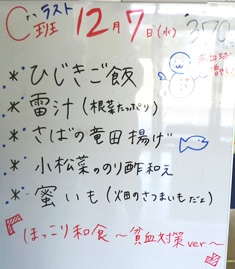 C班 ラスト 12月7日(水)
* ひじきご飯
* 雷汁(根菜たっぷり)
* さばの竜田揚げ
* 小松菜ののり酢和え
* 蜜いも(畑のさつまいもだよ)
ほっこり和食 ～貧血対策ver.～